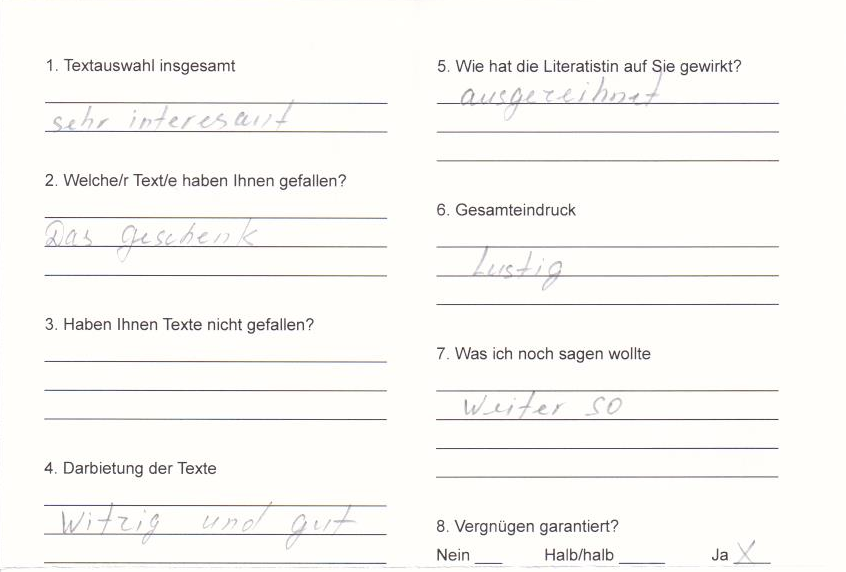 1. Textauswahl insgesamt
sehr interesant
2. Welche/r Text/e haben Ihnen gefallen?
Das geschenk
3. Haben Ihnen Texte nicht gefallen?
4. Darbietung der Texte
Witzig und gut
5. Wie hat die Literatistin auf Sie gewirkt?
ausgezeihnet
6. Gesamteindruck
Lustig
7. Was ich noch sagen wollte
Weiter so
8. Vergnügen garantiert?
Nein ___ Halb/halb _____ Ja X